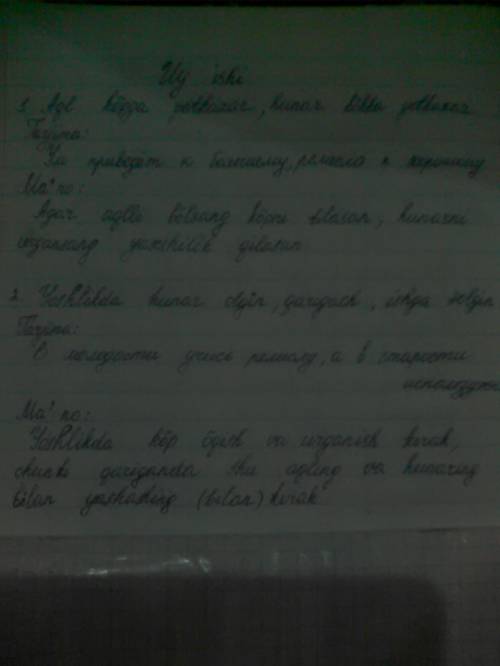 Uy ishi
1. Aql köpga yetkazar, hunar kökka yetkazar
Tarjima:
Ум приведёт к большему, ремесло к хорошему
Ma'no:
Agar aqlli bölsang köpni bilasan, hunarni
urgansang yaxshilik qilasan
2. Yoshlikda hunar olgin, qarigach, ishga solgin
Tarjima:
В молодости учись ремеслу, а в старости
используй
Ma'no:
Yoshlikda köp öqish va urganish kirak,
chunki qariganda shu aqling va hunaring
bilan yashashing (bilan) kirak